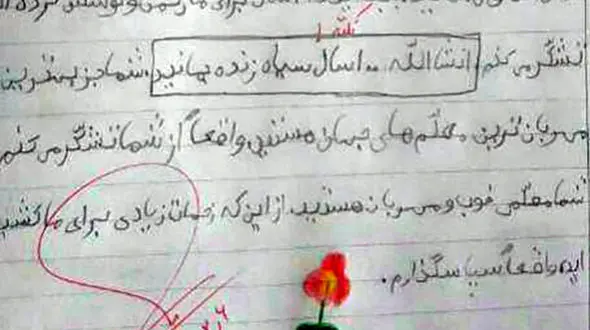 کلیه
تشکر می کنم. انشاالله ۱۰۰ سال سیاه زنده بمانید. شما جز بهترین
مهربان ترین معلم های جهان هستید. واقعاً از شما تشکر می کنم
شما معلمی خوب و مهربان هستید. از این که زحمات زیادی برای ما کشید
اید واقعاً سپاسگذارم.